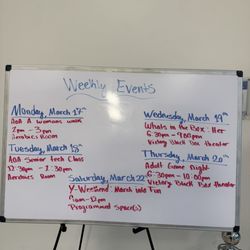 Weekly Events
Monday, March 17th
AOA A womans work
2pm - 3pm
Aerobics Room
Tuesday, March 18th
AOA Senior tech Class
12:30pm - 1:30pm
Aerobics Room
Wednesday, March 19th
Whats in the Box: Her
6:30pm - 9:00pm
Victory Black Box theater
Thursday, March 20th
Adult Game night
6:30pm - 10:00pm
Victory Black Box theater
Saturday, March 22
Y-Weekend: March into Fun
-12pm
Programmed Space(s)